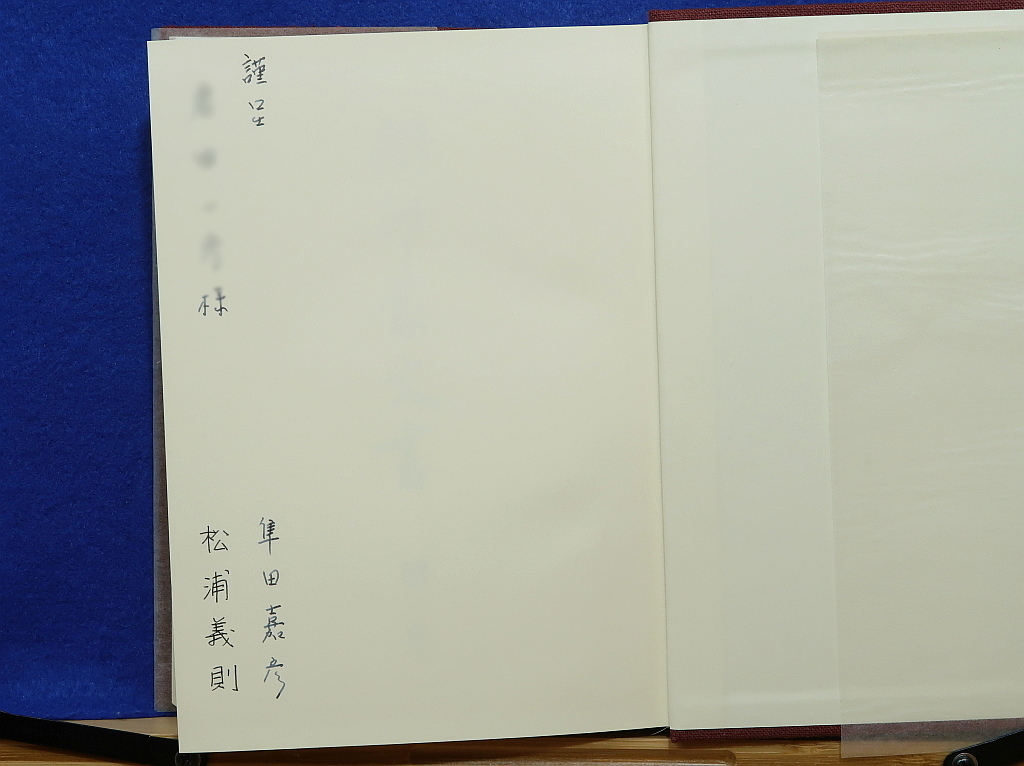 謹呈
様
隼田嘉彦
松浦義則